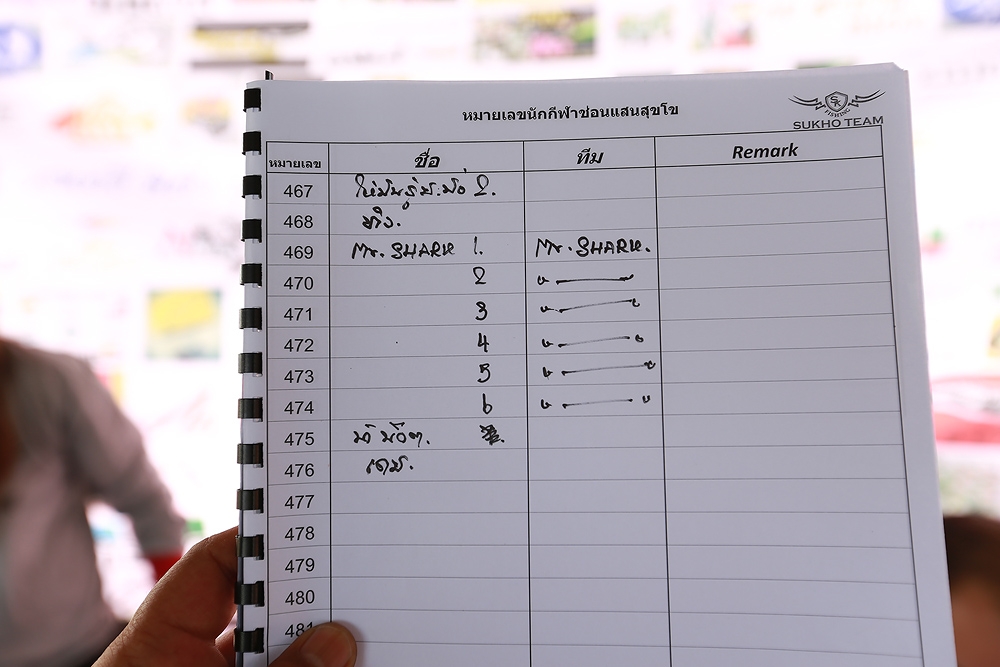 หมายเลขนักกีฬาช่อนแสนสุขโข
SK
FISHING
SUKHO TEAM
หมายเลข ชื่อ ทีม Remark
467 2.
468
469 Mr. SHARK 1. Mr. SHARK.
470 2
471 3
472 4
473 5
474 6
475
476 เดม.
477
478
479
480
481